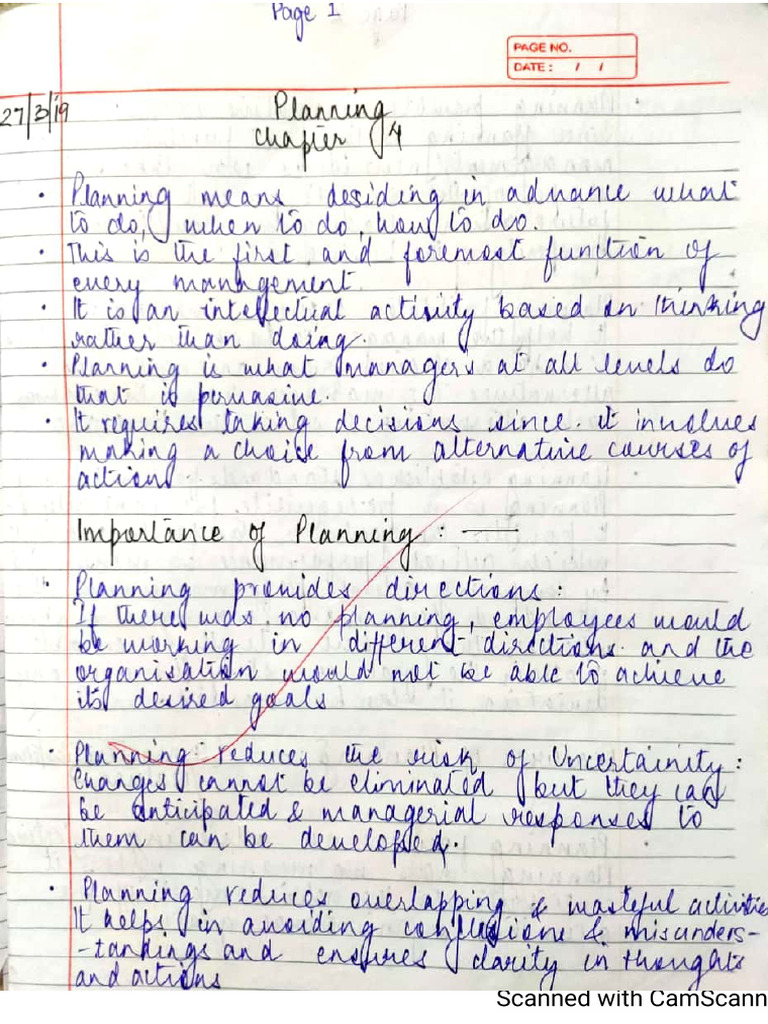 Page 1
PAGE NO.
DATE: / /
27/3/19
Planning
Chapter 4
• Planning means desiding in advance what
to do, when to do, how to do.
• This is the first and foremost function of
every management.
• It is an intellectual activity based on thinking
rather than doing.
• Planning is what managers at all levels do
that is pervasive.
• It requires taking decisions since it involves
making a choice from alternative courses of
action.
Importance of Planning : —
• Planning provides directions :
If there was no planning, employees would
be working in different directions and the
organisation would not be able to achieve
its desired goals
• Planning reduces the risk of Uncertainity :
Changes cannot be eliminated but they can
be anticipated & managerial responses to
them can be developed.
• Planning reduces overlapping & wasteful activities
It helps in avoiding confusions & misunders-
-tandings and ensures clarity in thoughts
and actions
Scanned with CamScann